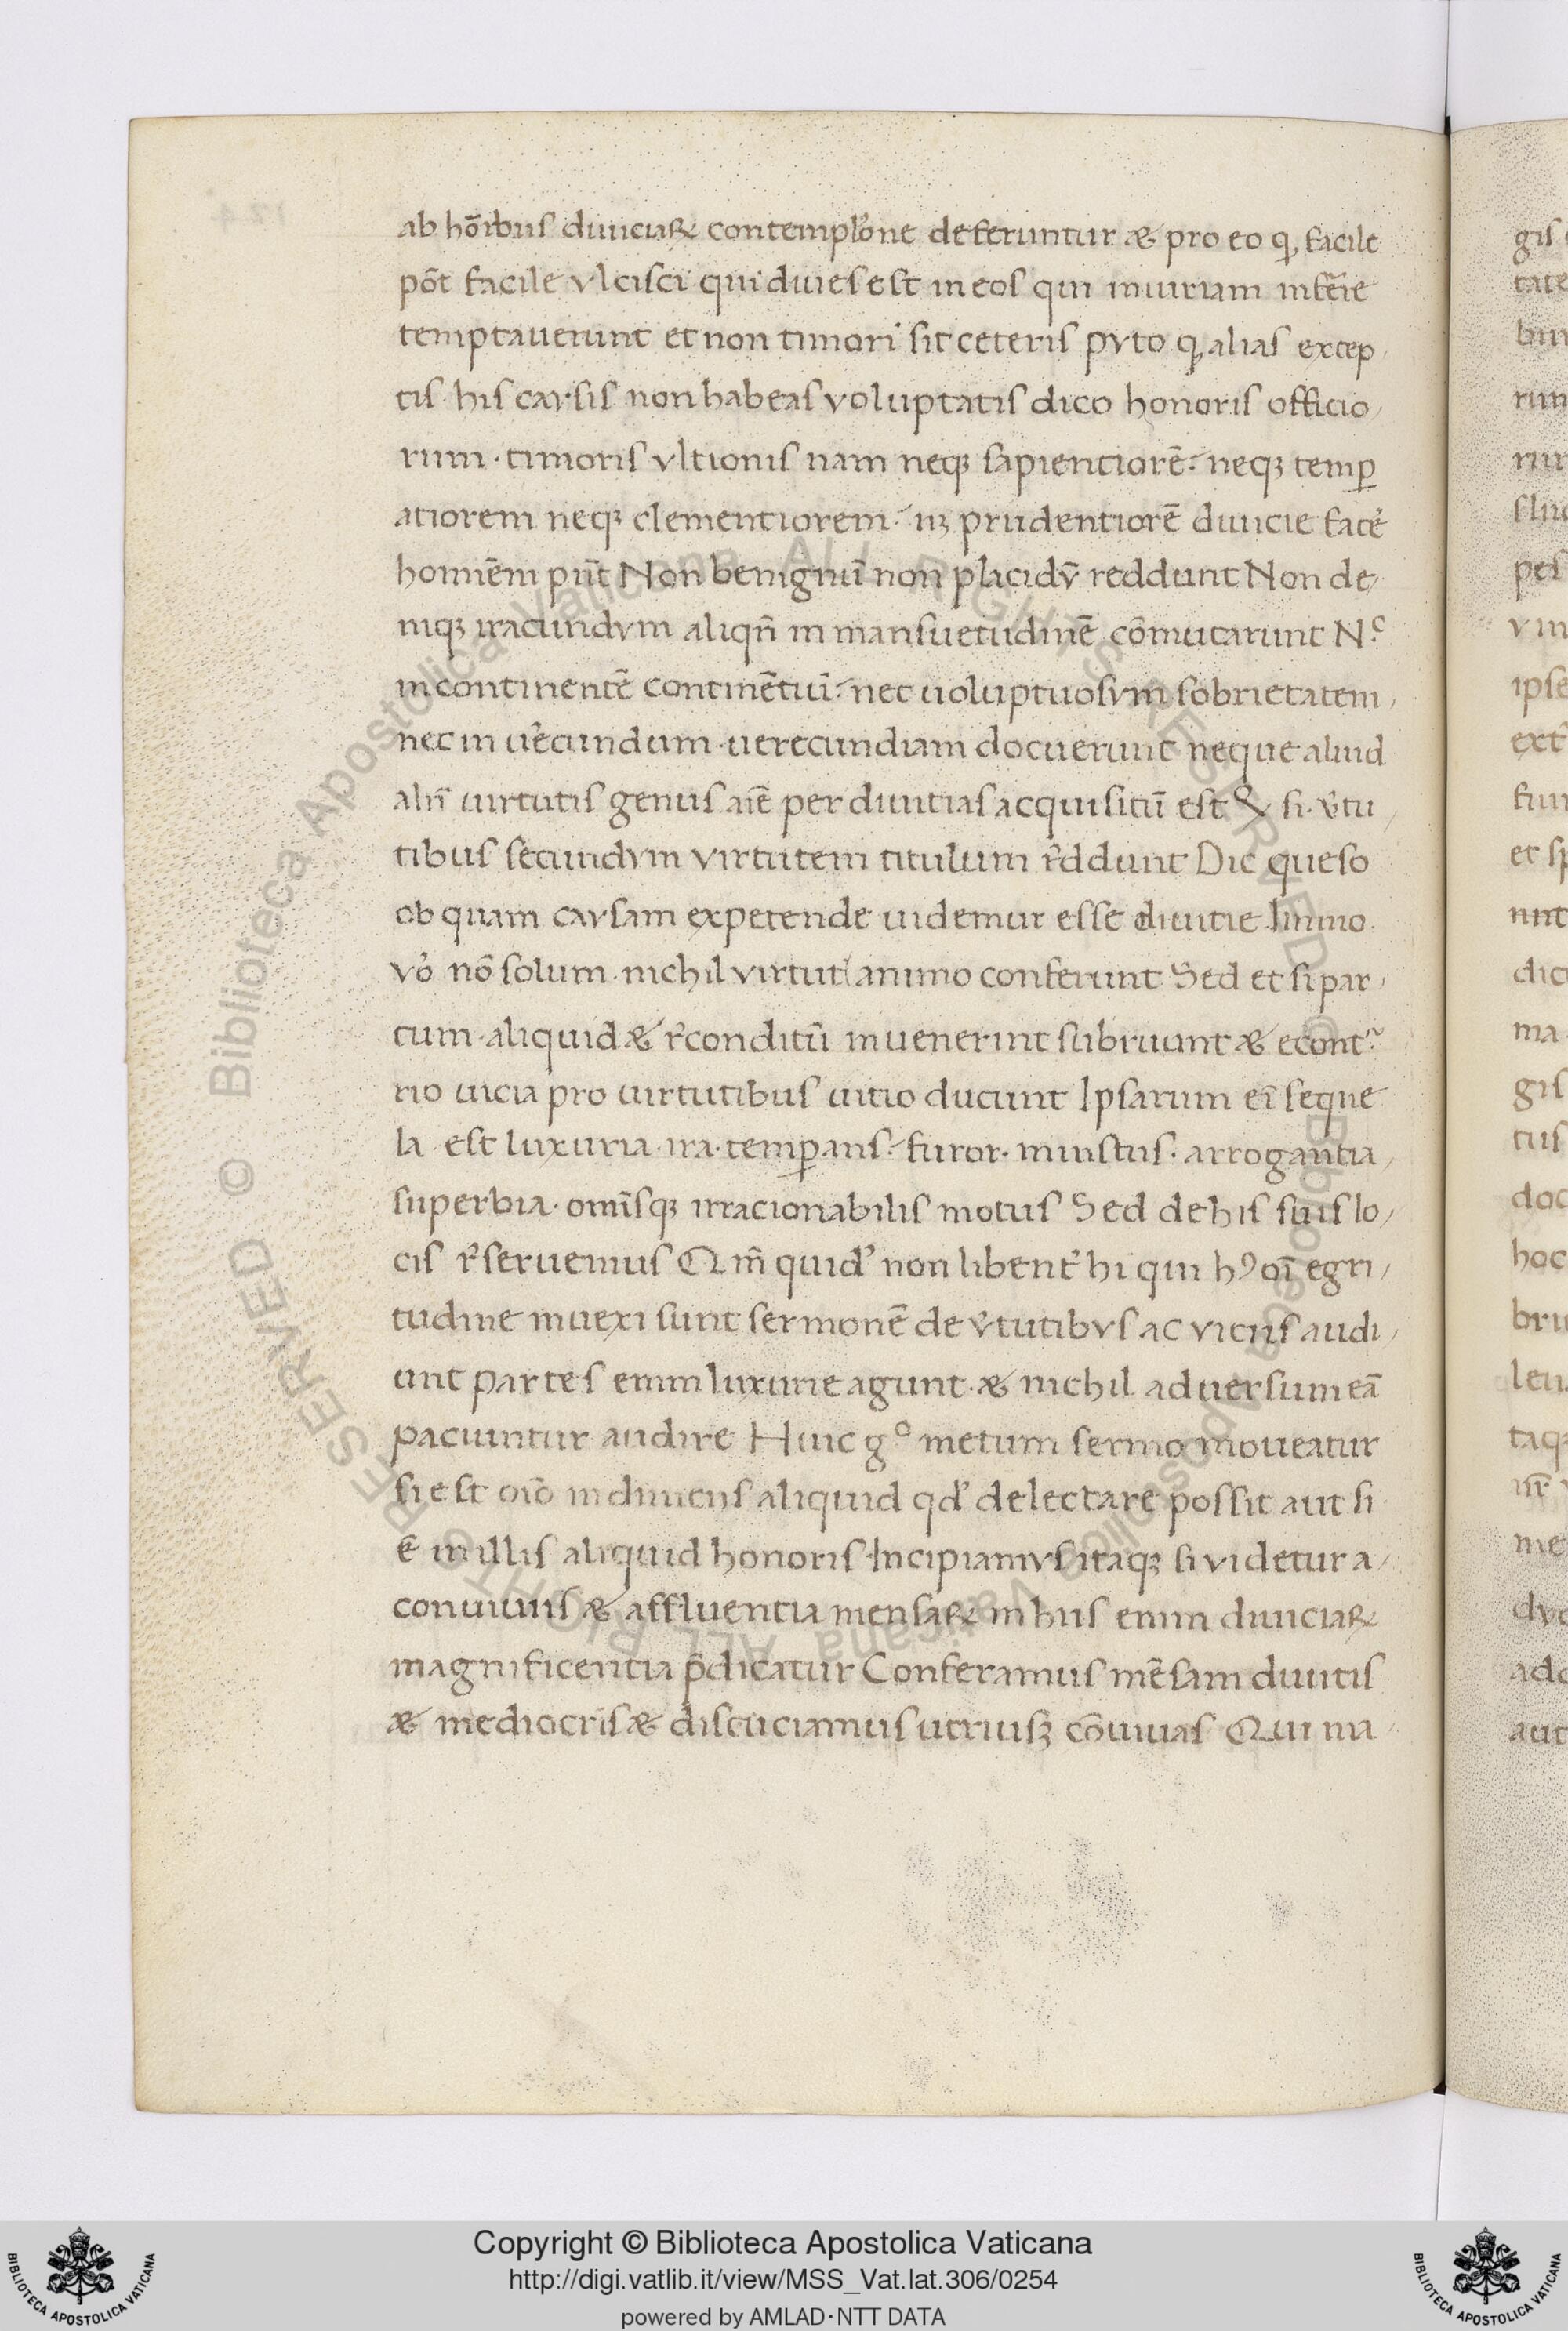 ab hōībus diuiciaꝝ contempl'one deferuntur & pro eo q, facile
pōt facile vlcisci qui diues est in eos qui iniuriam inf̄erre
temptauerunt et non timori sit ceteris pvto q, alias excep
tis his cavsis non habeas voluptatis dico honoris officio
rum · timoris vltionis nam neqꝫ sapientiorē neqꝫ temꝑ
atiorem neqꝫ clementiorem prudentiorē diuicie facē
hominēm pn̄t Non benignū non placidv̄ reddunt Non de
niqꝫ iracundvm aliqn̄ in mansuetudinē cōmutarunt Nᶜ
in continentē continētiā nec uoluptuosvm sobrietatem
nec in ūecundum · uerecundiam docuerunt neque aliud
alin̄ uirtutis genus aīe per diuitias acquisitū est si · v̄tu
tibus secundvm virtutem titulum r̄ddunt Dic queso
ob quam cavsam expetende uidemur esse diuitie Immo
vo' nō solum · nichil virtuti animo conferunt Sed et si par
tum · aliquid & r̄conditū inuenerint subruunt & econtᵃ
rio uicia pro uirtutibus uitio ducunt Ipsarum eī seque
la est luxuria · ira · temꝑans furor · iniustus · arrogantia
superbia · omīsqꝫ irracionabilis motus Sed de his suis lo
cis r̄seruemus Qm̄ quid' non libent' hi qui hꝰ oī egri
tudine inuexi sunt sermonē de v̄tutibvs ac viciis audi
unt partes enim luxurie agunt · & nichil aduersum eā
paciuntur audire Huic gᵒ metum sermo moueatur
si est oīo in diuiciis aliquid qd' delectare possit aut si
ē in illis aliquid honoris · Incipiamvs itaqꝫ si videtur a
conuiuiis & affluentia mensaꝝ in hiis enim diuiciaꝝ
magnificentia p̄dicatur Conferamus mēsam diuitis
& mediocris & discuciamus utriusqꝫ cōuiuas Qui ma
Copyright © Biblioteca Apostolica Vaticana
http://digi.vatlib.it/view/MSS_Vat.lat.306/0254
powered by AMLAD·NTT DATA